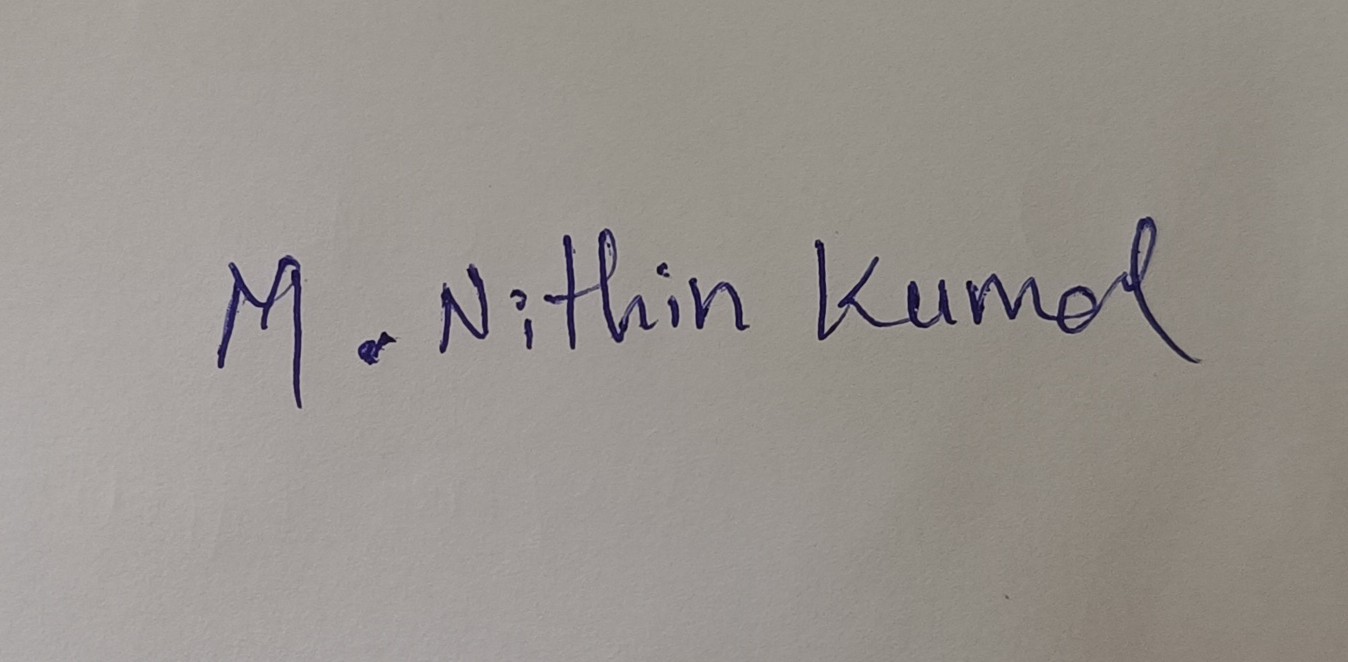 M. Nithin Kumar